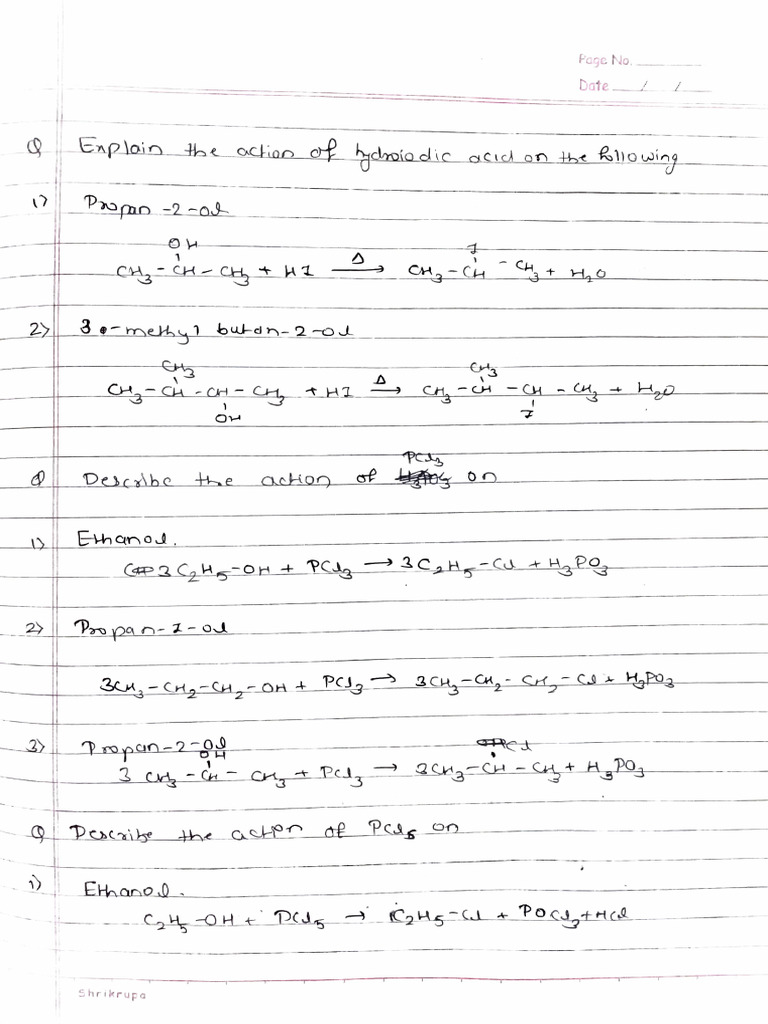 Page No.
Date / /
Q Explain the action of hydroiodic acid on the following
1) Propan-2-ol
OH
CH3-CH-CH3 + HI Δ→ CH3-CH-CH3 + H2O
I
2) 3-methyl butan-2-ol
CH3 CH3
CH3-CH-CH-CH3 + HI Δ→ CH3-CH-CH-CH3 + H2O
OH I
PCl3
Q Describe the action of on
1) Ethanol.
3C2H5-OH + PCl3 → 3C2H5-Cl + H3PO3
2) Propan-1-ol
3CH3-CH2-CH2-OH + PCl3 → 3CH3-CH2-CH2-Cl + H3PO3
3) Propan-2-ol
OH Cl
3 CH3-CH-CH3 + PCl3 → 3CH3-CH-CH3 + H3PO3
Q Describe the action of PCl5 on
1) Ethanol.
C2H5-OH + PCl5 → C2H5-Cl + POCl3 + HCl
Shrikrupa